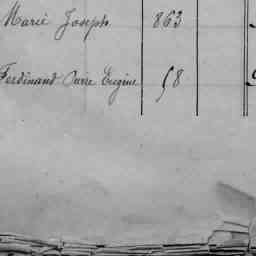 Marie Joseph 863
Ferdinand Eugène 58